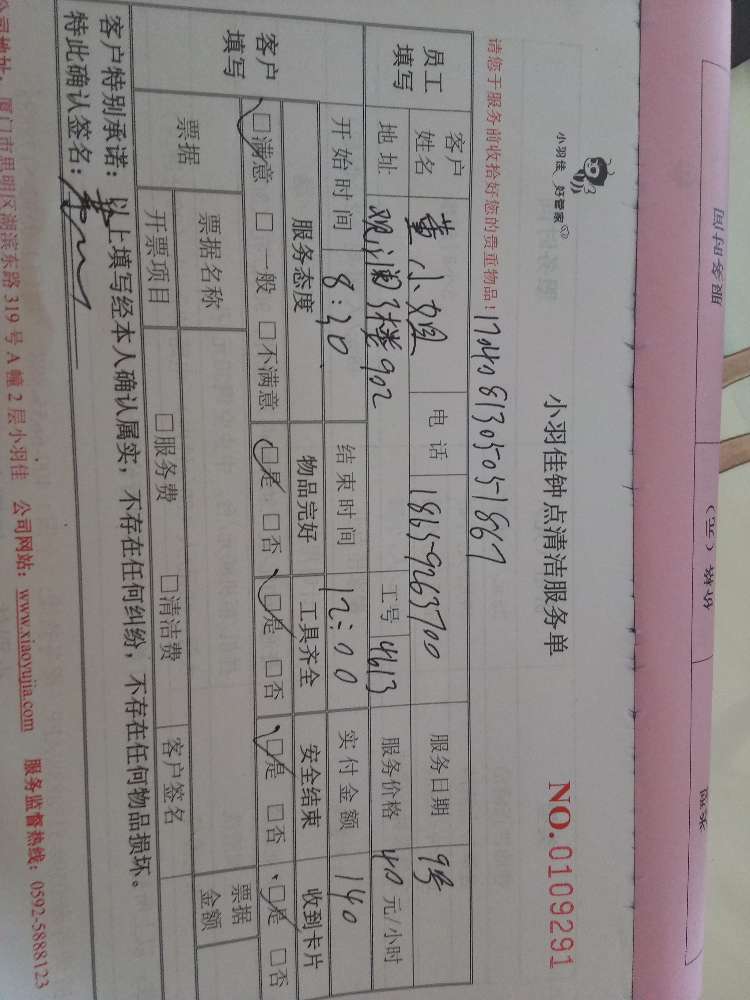 小羽佳 好管家
小羽佳钟点清洁服务单
NO.0109291
请您于服务前收拾好您的贵重物品！
1704081305051867
员工填写 客户姓名 董小姐 电话 18659263700 服务日期 9号
地址 观澜3楼902 工号 4613 服务价格 40元/小时
开始时间 8:30 结束时间 12:00 实付金额 140
客户填写 服务态度 物品完好 工具齐全 安全结束 收到卡片
☑满意 □一般 □不满意 ☑是 □否 ☑是 □否 ☑是 □否 ☑是 □否
票据 票据名称 票据金额
开票项目 □服务费 □清洁费 客户签名
客户特别承诺：以上填写经本人确认属实，不存在任何纠纷，不存在任何物品损坏。
特此确认签名：
公司地址：厦门市思明区湖滨东路 319 号 A 幢 2 层小羽佳 公司网站：www.xiaoyujia.com 服务监督热线：0592-5888123